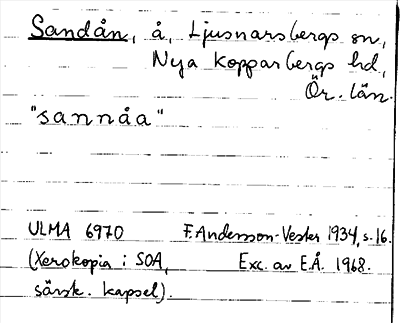 Sandån, å, Ljusnarsbergs sn,
Nya Kopparbergs hd,
Ör. län.
"sannåa"
ULMA 6970 F. Andersson-Vester 1934, s. 16.
(Xerokopia i SOA, Exc. av E.Å. 1968.
särsk. kapsel).